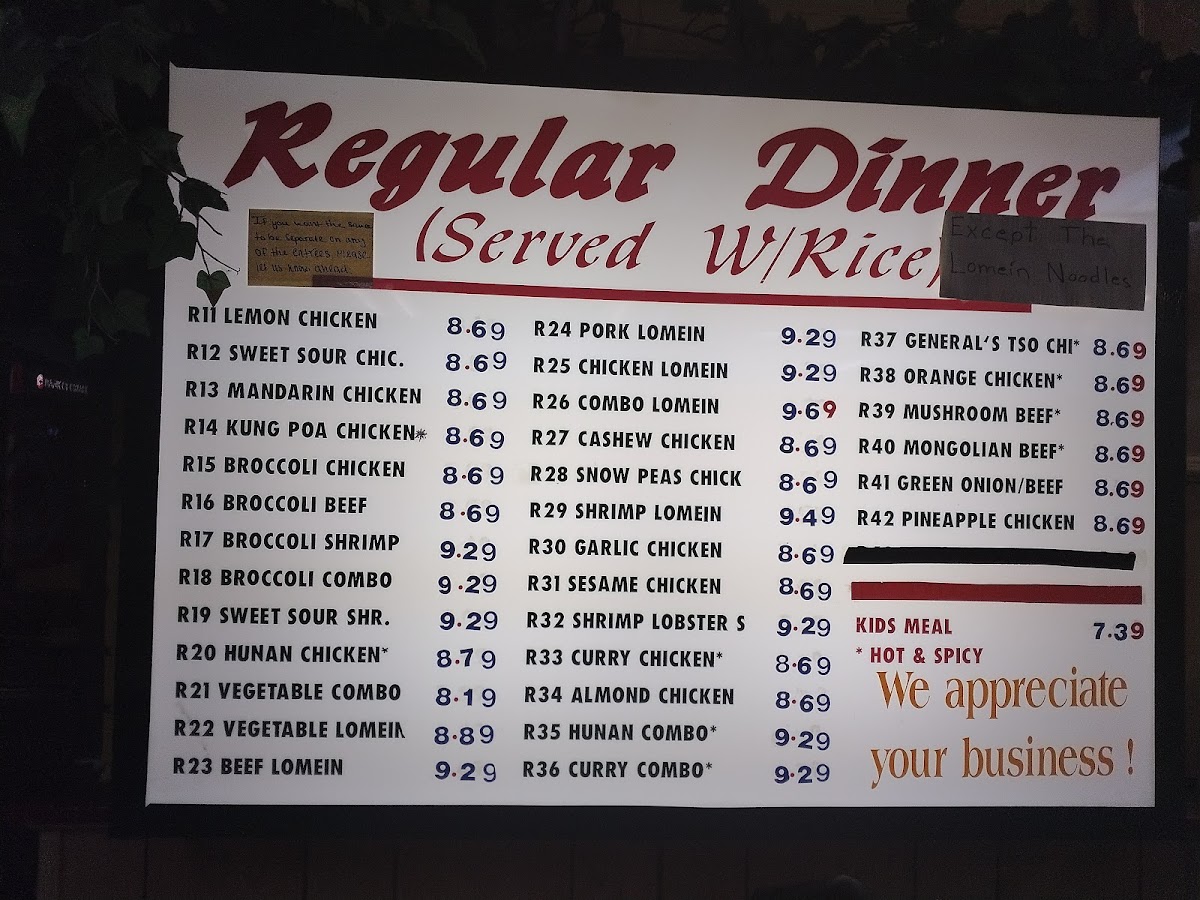 Regular Dinner
(Served W/Rice)
If you want the sauce
to be separate on any
of the entrees please
let us know ahead.
Except The
Lomein Noodles
R11 LEMON CHICKEN 8.69
R12 SWEET SOUR CHIC. 8.69
R13 MANDARIN CHICKEN 8.69
R14 KUNG POA CHICKEN* 8.69
R15 BROCCOLI CHICKEN 8.69
R16 BROCCOLI BEEF 8.69
R17 BROCCOLI SHRIMP 9.29
R18 BROCCOLI COMBO 9.29
R19 SWEET SOUR SHR. 9.29
R20 HUNAN CHICKEN* 8.79
R21 VEGETABLE COMBO 8.19
R22 VEGETABLE LOMEIN 8.89
R23 BEEF LOMEIN 9.29
R24 PORK LOMEIN 9.29
R25 CHICKEN LOMEIN 9.29
R26 COMBO LOMEIN 9.69
R27 CASHEW CHICKEN 8.69
R28 SNOW PEAS CHICK 8.69
R29 SHRIMP LOMEIN 9.49
R30 GARLIC CHICKEN 8.69
R31 SESAME CHICKEN 8.69
R32 SHRIMP LOBSTER S 9.29
R33 CURRY CHICKEN* 8.69
R34 ALMOND CHICKEN 8.69
R35 HUNAN COMBO* 9.29
R36 CURRY COMBO* 9.29
R37 GENERAL'S TSO CHI* 8.69
R38 ORANGE CHICKEN* 8.69
R39 MUSHROOM BEEF* 8.69
R40 MONGOLIAN BEEF* 8.69
R41 GREEN ONION/BEEF 8.69
R42 PINEAPPLE CHICKEN 8.69
KIDS MEAL 7.39
* HOT & SPICY
We appreciate
your business !